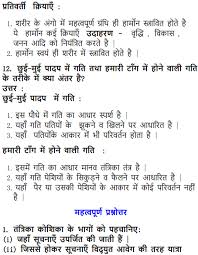 प्रतिवर्ती क्रियाएँ :
१. शरीर के अंगो में महत्वपूर्ण ग्रंथि ही हार्मोन स्त्रावित होते है
ये हार्मोन कई क्रियाएँ उदाहरण - वृद्धि , विकास ,
जनन आदि को नियंत्रित करते है |
२. हार्मोन स्वयं ही शरीर में स्त्रावित होते है |
12. छुई-मुई पादप में गति तथा हमारी टाँग में होने वाली गति
के तरीके में क्या अंतर है?
उत्तर :
छुई-मुई पादप में गति :
१. इस पौधे में गति का आधार स्पर्श है |
२. यहाँ गति पतियों के झुकने व खिलने पर आधारित है |
३. यहाँ पतियोंके आकार में भी परिवर्तन होता है |
हमारी टाँग में होने वाली गति :
१. इसमें गति का आधार मानव तंत्रिका तंत्र है |
२. यहाँ गति पेशियों के सिकुड़ने व फैलने पर आधारित है |
३. यहाँ पैर या उसकी पेशियों के आकार में कोई परिवर्तन नहीं
है |
महत्वपूर्ण प्रश्नोत्तर
1. तंत्रिका कोशिका के भागों को पहचानिए:
(1) जहाँ सूचनाएँ उपर्जित की जाती हैं |
(11) जिससे होकर सूचनाएँ विद्युत आवेग की तरह यात्रा